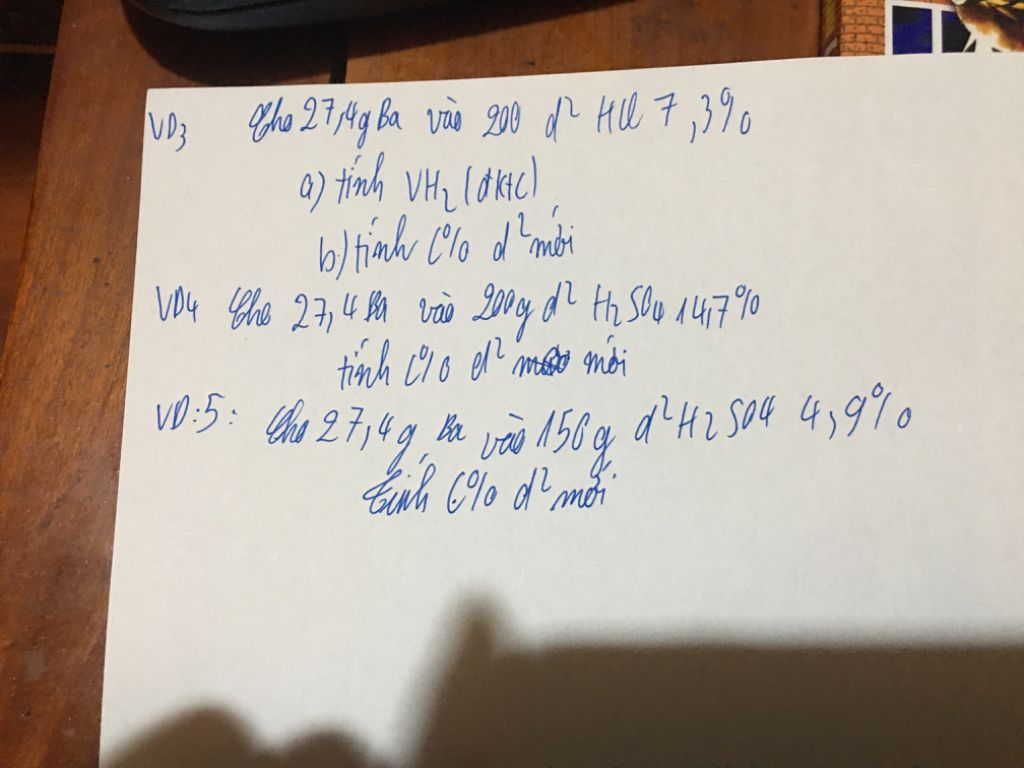 VD3 Cho 27,4g Ba vào 200 d² HCl 7,3%
a) tính VH2 (đktc)
b) tính C% d² mới
VD4 Cho 27,4 Ba vào 200g d² H2SO4 14,7%
tính C% d² mới
VD:5: Cho 27,4g Ba vào 150g d² H2SO4 4,9%
tính C% d² mới